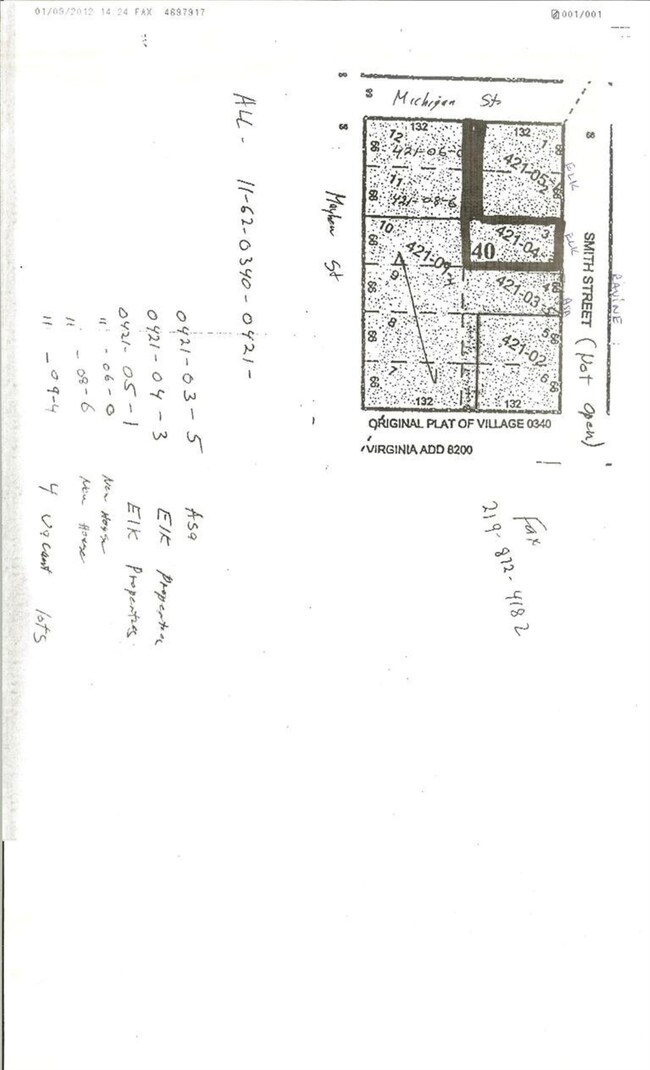 01/09/2012 14 24 FAX 4697917
001/001
Michigan St
132
132
12
421-06-0
1
421-05-1
2
66
66
11
421-08-6
66
66
10
3
421-04-3
40
66
66
9
421-09-4
4
421-03-5
66
66
8
5
421-02
66
66
7
6
66
66
132
132
ELK
ELK
ASA
SMITH STREET (Not open)
RAVINE
St
ORIGINAL PLAT OF VILLAGE 0340
VIRGINIA ADD 8200
Fax
219-872-4182
ALL - 11-62-0340-0421-
0421-03-5 Asa
0421-04-3 Elk Properties
0421-05-1 Elk Properties
" -06-0 New House
" -08-6 New House
" -09-4 4 vacant lots